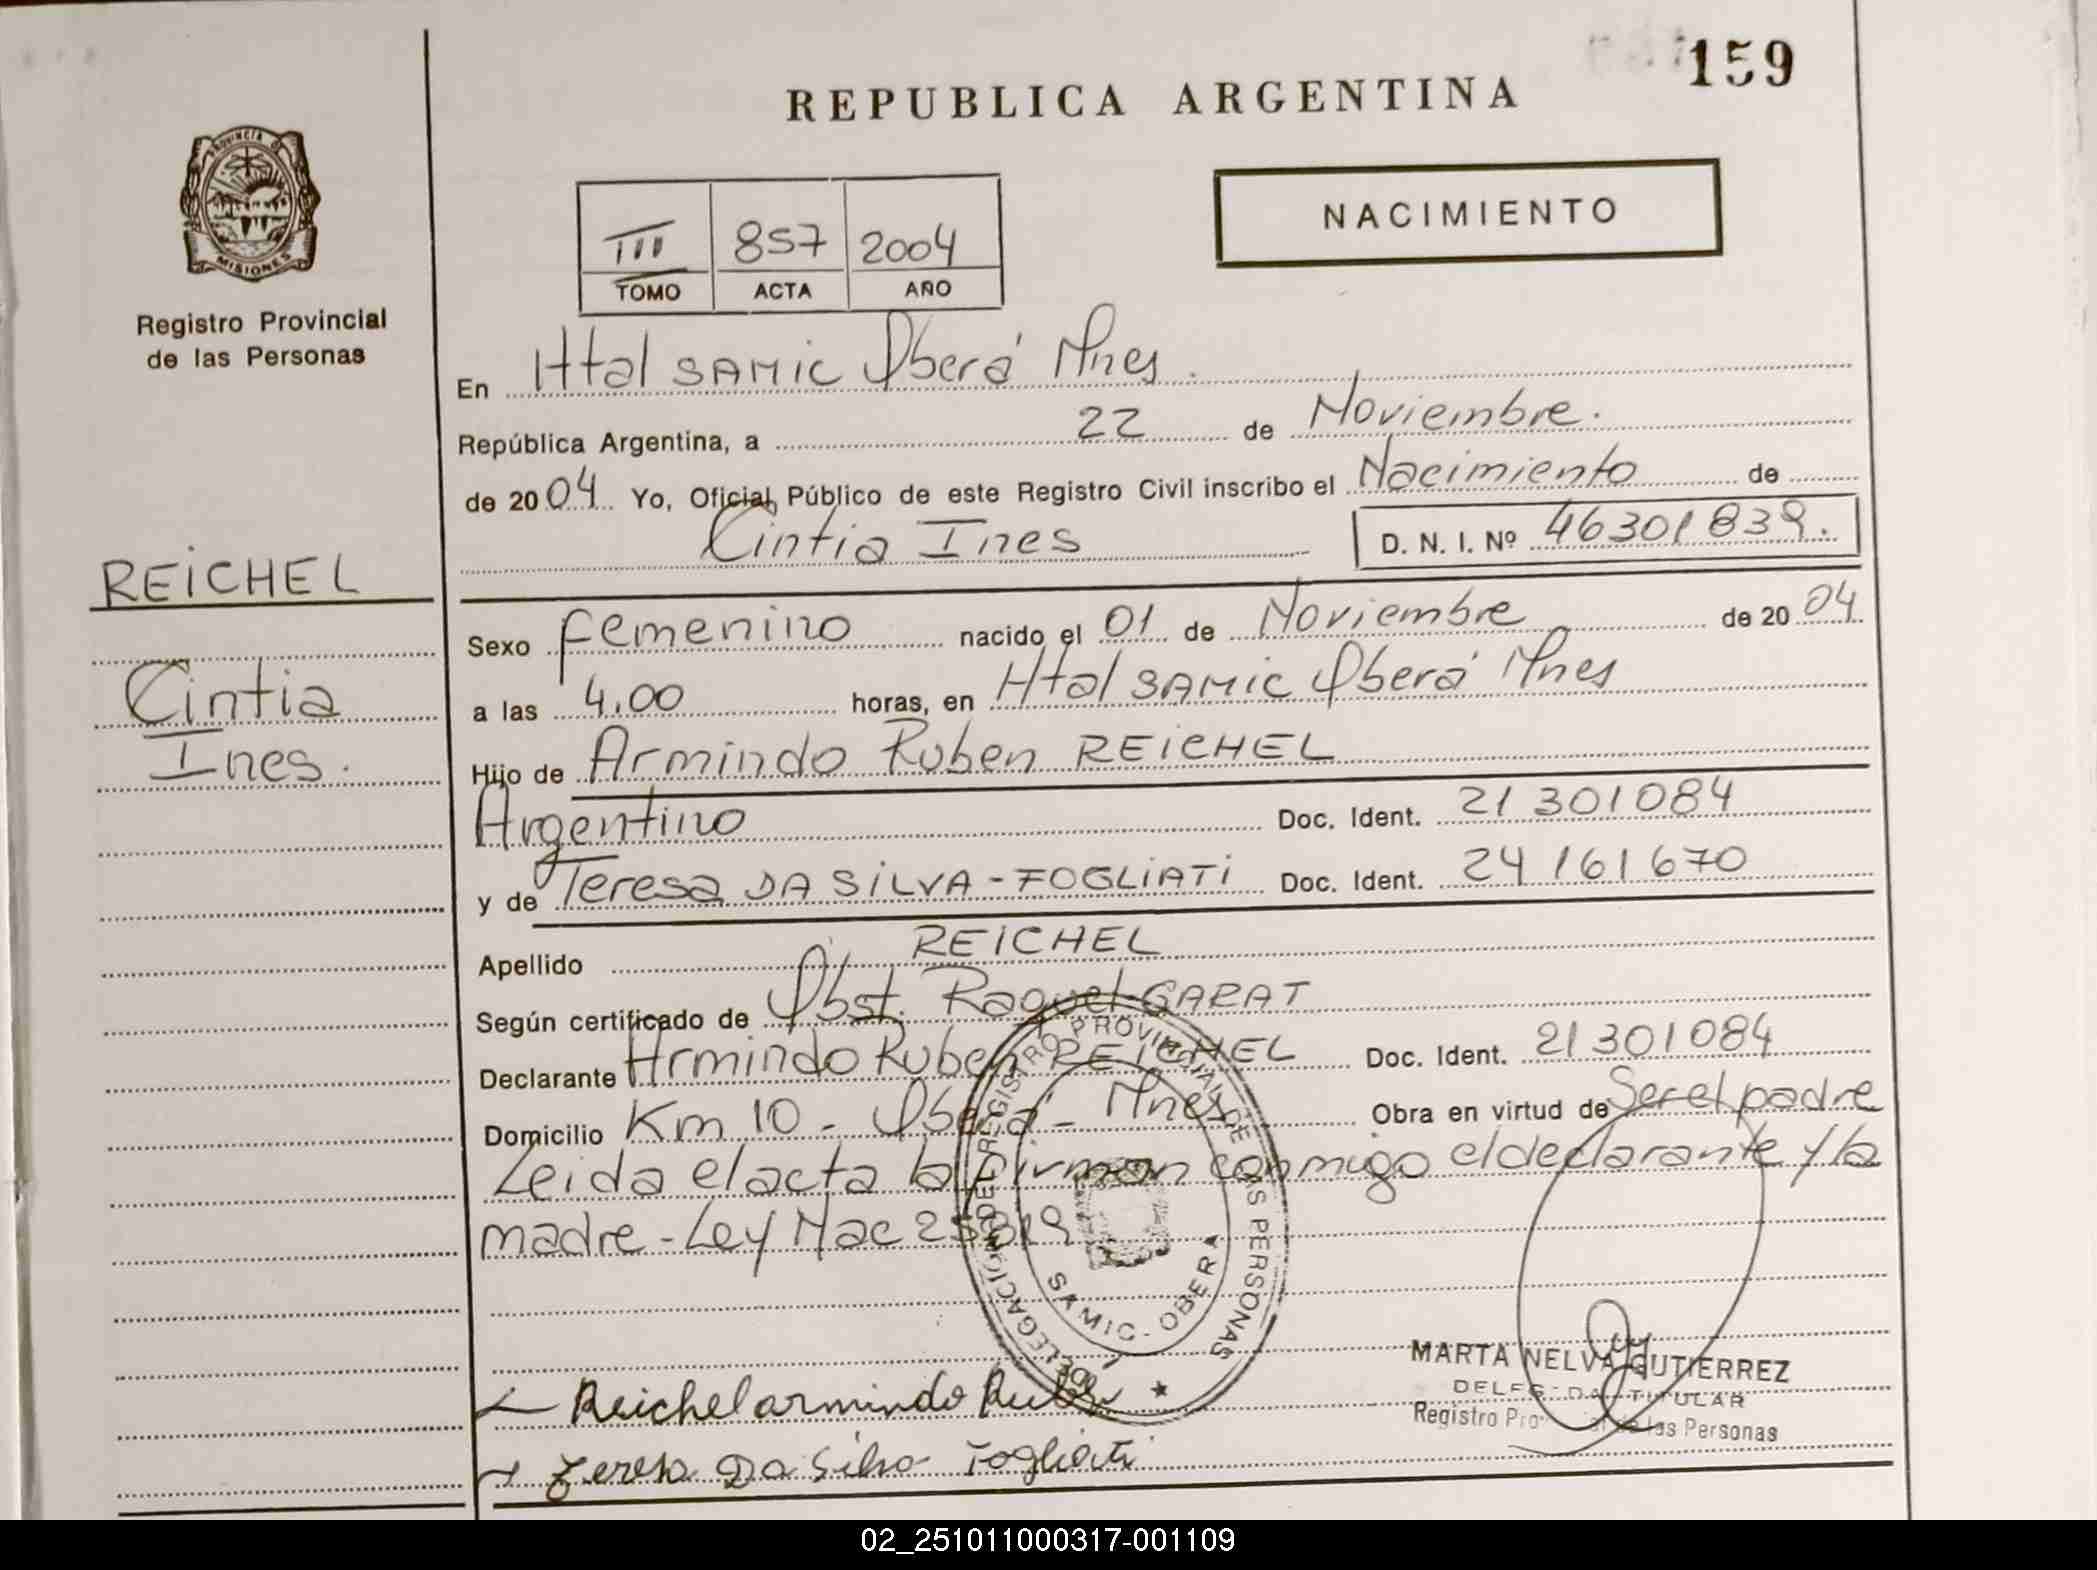 159
REPUBLICA ARGENTINA
PROVINCIA DE MISIONES
Registro Provincial
de las Personas
III 857 2004
TOMO ACTA AÑO
NACIMIENTO
En Htal SAMIC Oberá Mnes.
República Argentina, a 22 de Noviembre.
de 2004 Yo, Oficial Público de este Registro Civil inscribo el Nacimiento de
Cintia Ines D. N. I. Nº 46301839.
REICHEL
Cintia
Ines.
Sexo femenino nacido el 01 de Noviembre de 2004
a las 4.00 horas, en Htal SAMIC Oberá Mnes
Hijo de Armindo Ruben REICHEL
Argentino Doc. Ident. 21301084
y de Teresa DA SILVA-FOGLIATI Doc. Ident. 24161670
Apellido REICHEL
Según certificado de Obst. Raquel GARAT
Declarante Armindo Ruben REICHEL Doc. Ident. 21301084
Domicilio Km 10 - Oberá - Mnes Obra en virtud de Ser el padre
Leida el acta la firman conmigo el declarante y la
madre - Ley Nac 25819
DELEGACION DEL REGISTRO PROVINCIAL DE LAS PERSONAS
SAMIC - OBERA
Reichel armindo Rubén
Teresa Da Silva Fogliati
MARTA NELVA GUTIERREZ
DELEGADA TITULAR
Registro Provincial de las Personas
02_251011000317-001109